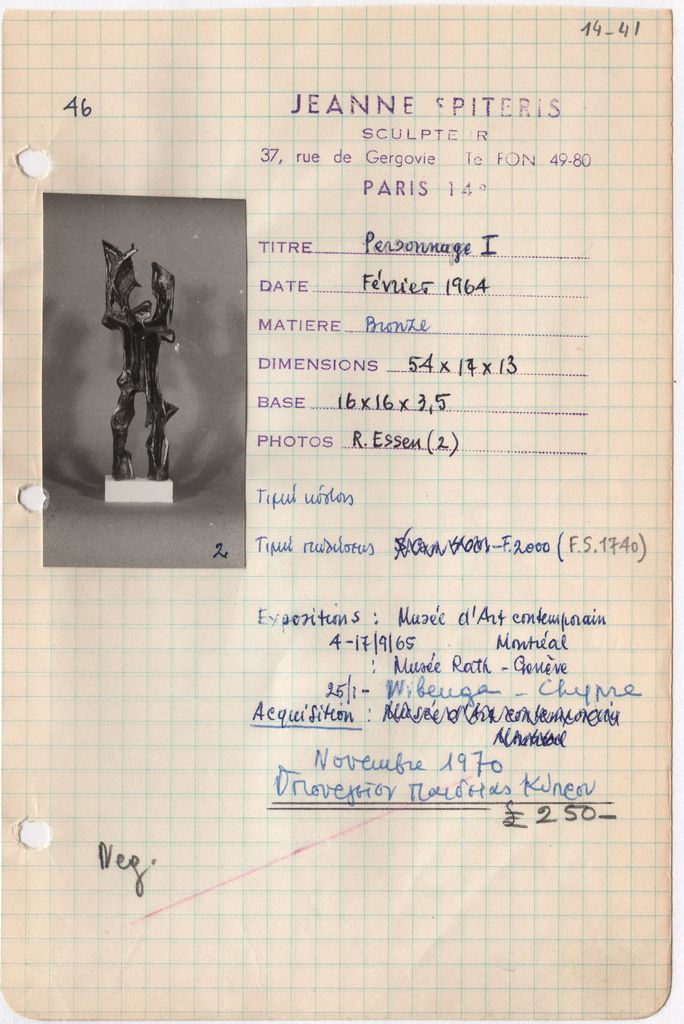 14-41
46
JEANNE SPITERIS
SCULPTE R
37, rue de Gergovie Te FON 49-80
PARIS 14e
TITRE Personnage I
DATE Février 1964
MATIERE Bronze
DIMENSIONS 54 x 17 x 13
BASE 16 x 16 x 3,5
PHOTOS R. Essen (2)
2
Τιμή κόστους
Τιμή πωλήσεως F. 2000 (F.S. 1740)
Expositions : Musée d'Art contemporain
4-17/9/65 Montréal
: Musée Rath - Genève
25/1- - Chypre
Acquisition : Musée d'Art contemporain
Montréal
Novembre 1970
Υπουργείον Παιδείας Κύπρου
£ 250-
Neg.